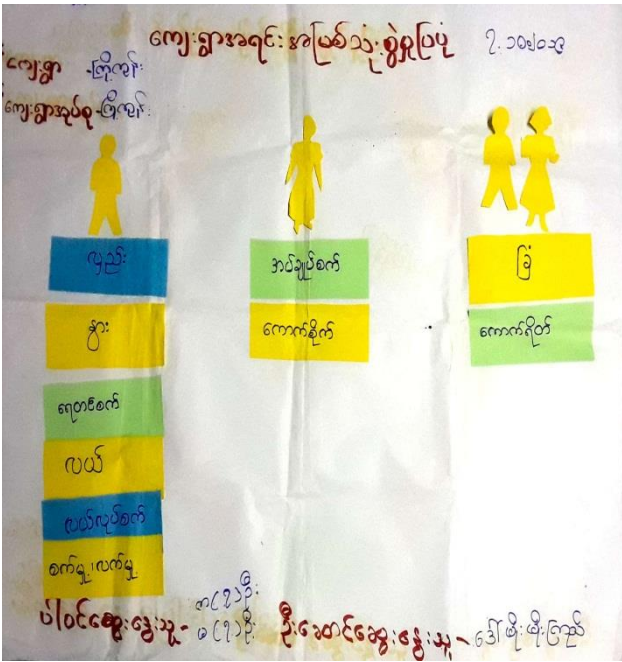 ကျေးရွာအရင်းအမြစ်သုံးစွဲမှုပြပုံ ၇.၁၀.၂၀၁၉
ကျေးရွာ - ကြိုကုန်း
ကျေးရွာအုပ်စု - ကြိုကုန်း
လှည်း
နွား
ရေတင်စက်
လယ်
လယ်လုပ်စက်
စက်မှု၊ လက်မှု
အပ်ချုပ်စက်
ကောက်စိုက်
ခြံ
ကောက်ရိတ်
ပါဝင်ဆွေးနွေးသူ - က(၇)ဦး
မ(၇)ဦး
ဦးဆောင်ဆွေးနွေးသူ - ဒေါ်ဖိုးဖိုးကြည်